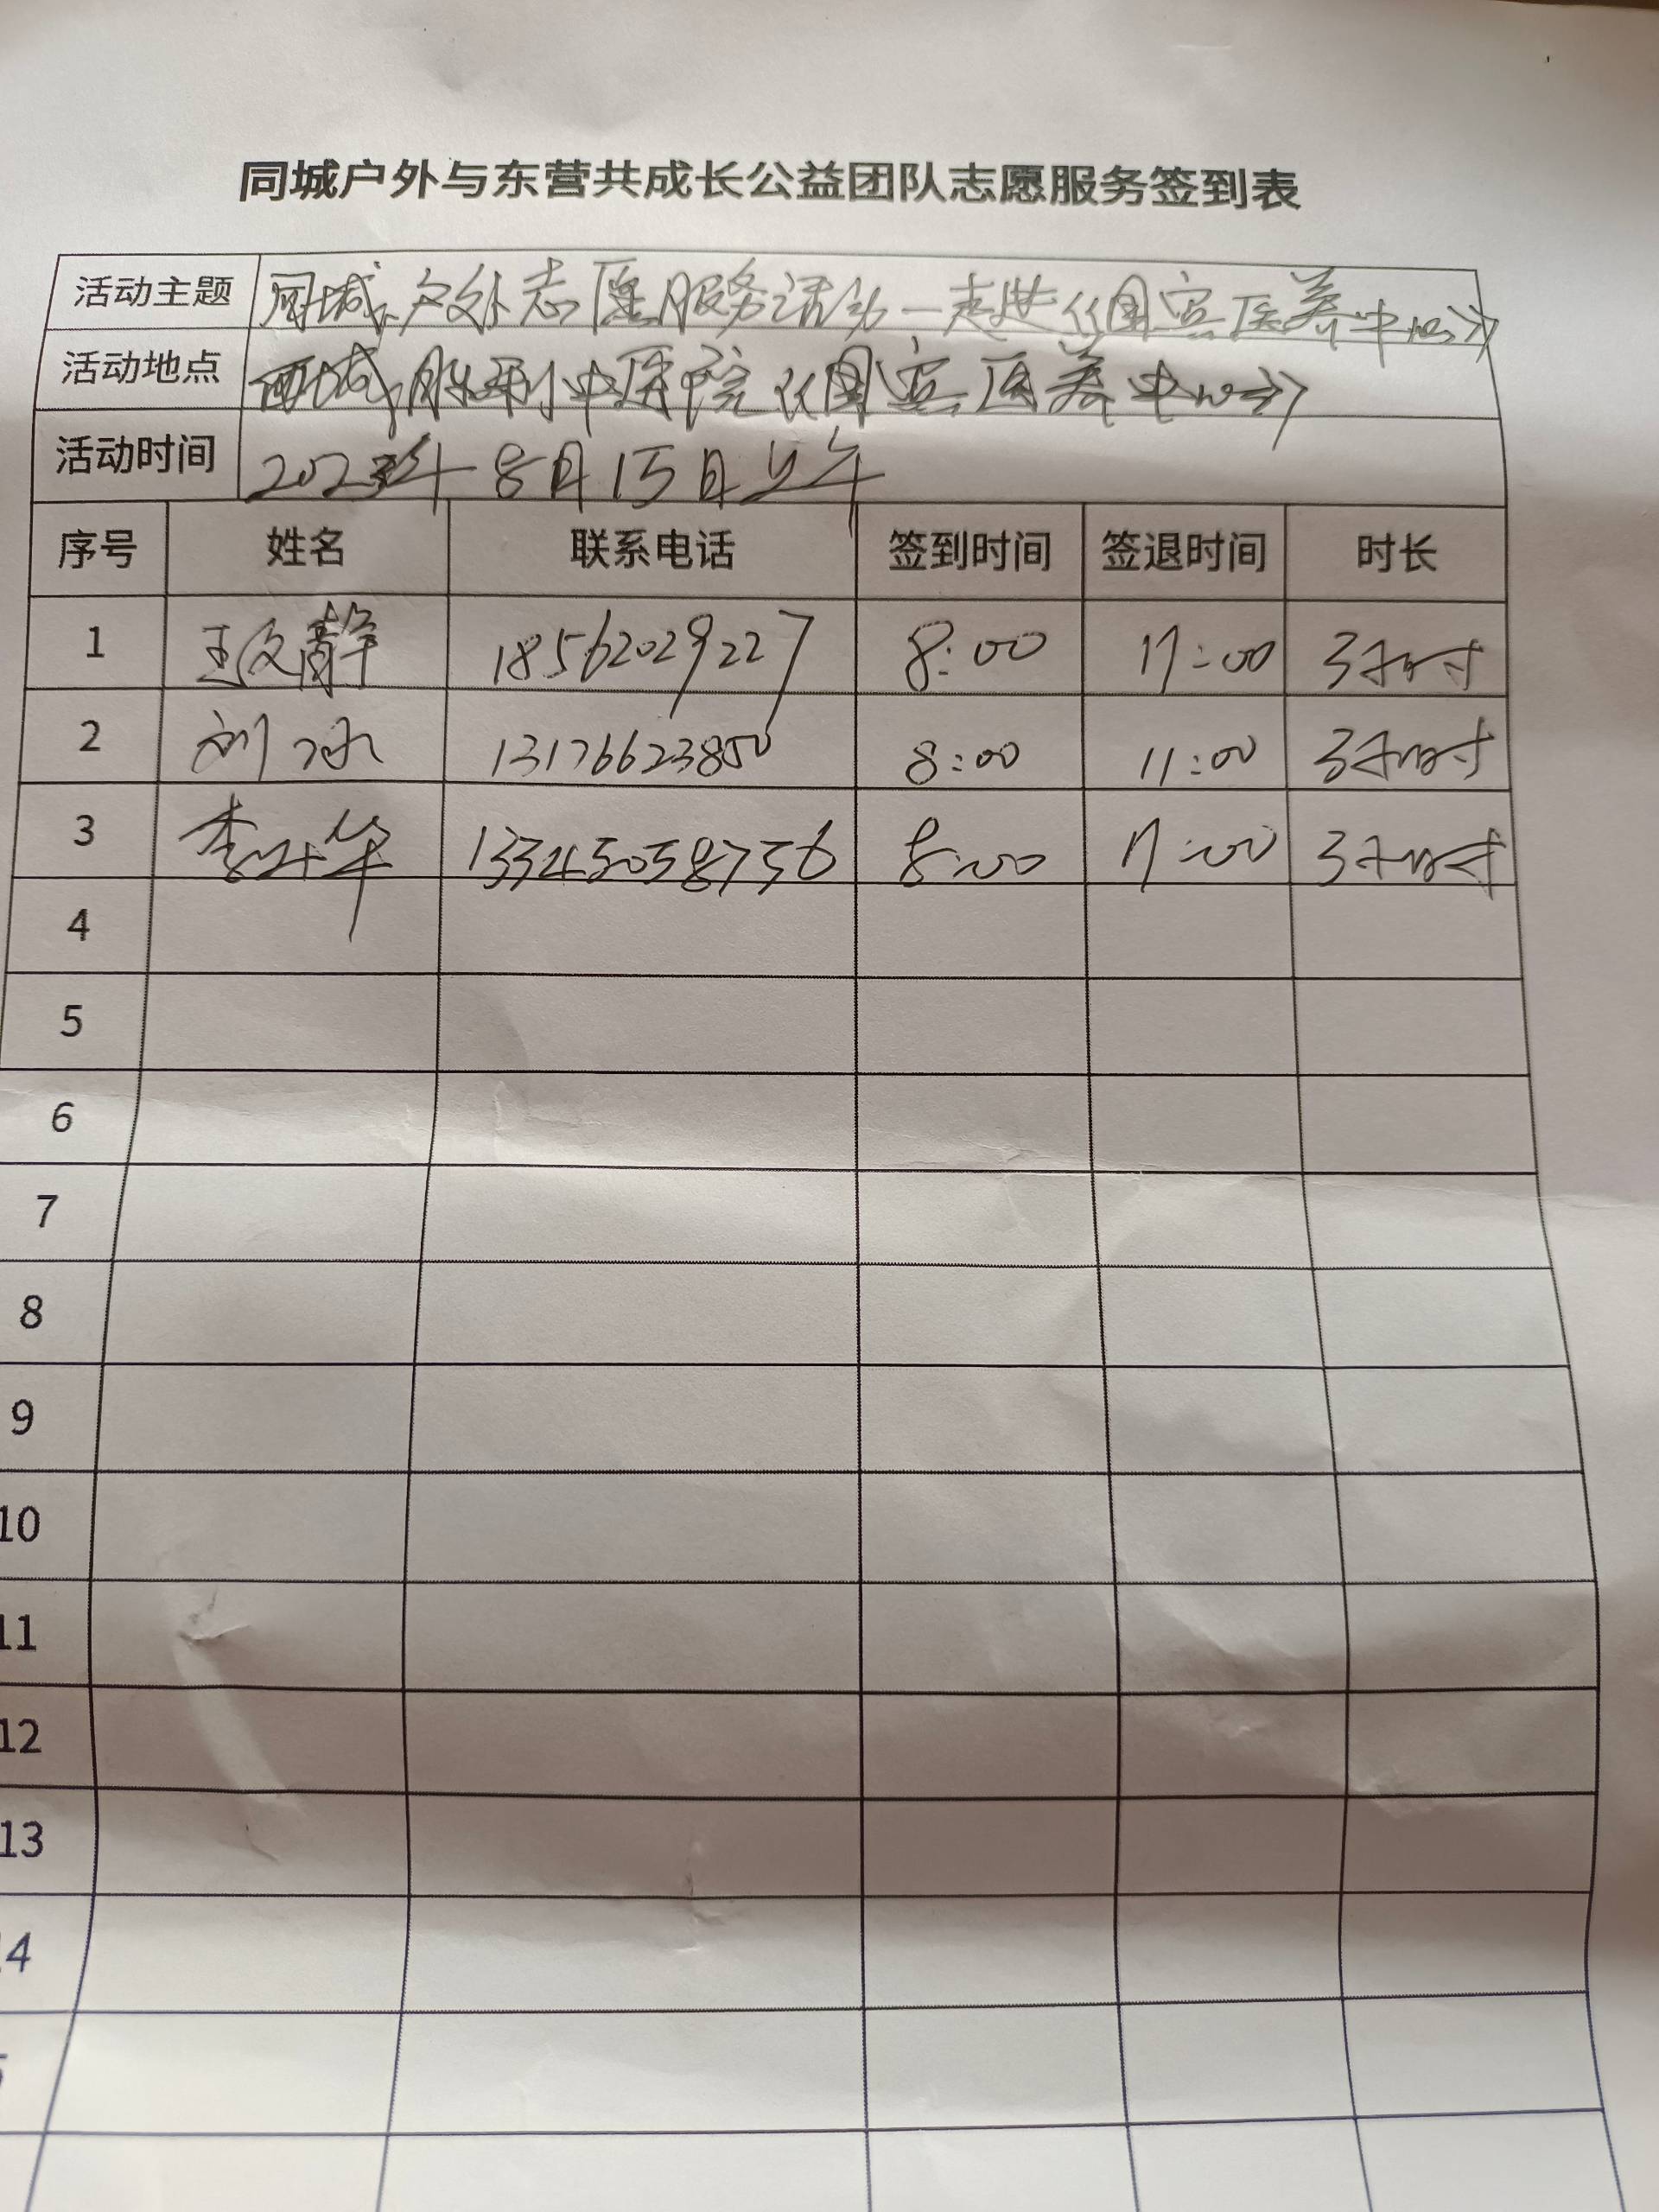 同城户外与东营共成长公益团队志愿服务签到表
活动主题 同城户外志愿服务活动—走进《国宾医养中心》
活动地点 西城胜利中医院《国宾医养中心》
活动时间 2023年8月15日上午
序号 姓名 联系电话 签到时间 签退时间 时长
1 王文静 18562029227 8:00 11:00 3小时
2 刘冰 13176623850 8:00 11:00 3小时
3 李叶华 13345058756 8:00 11:00 3小时
4
5
6
7
8
9
10
11
12
13
14